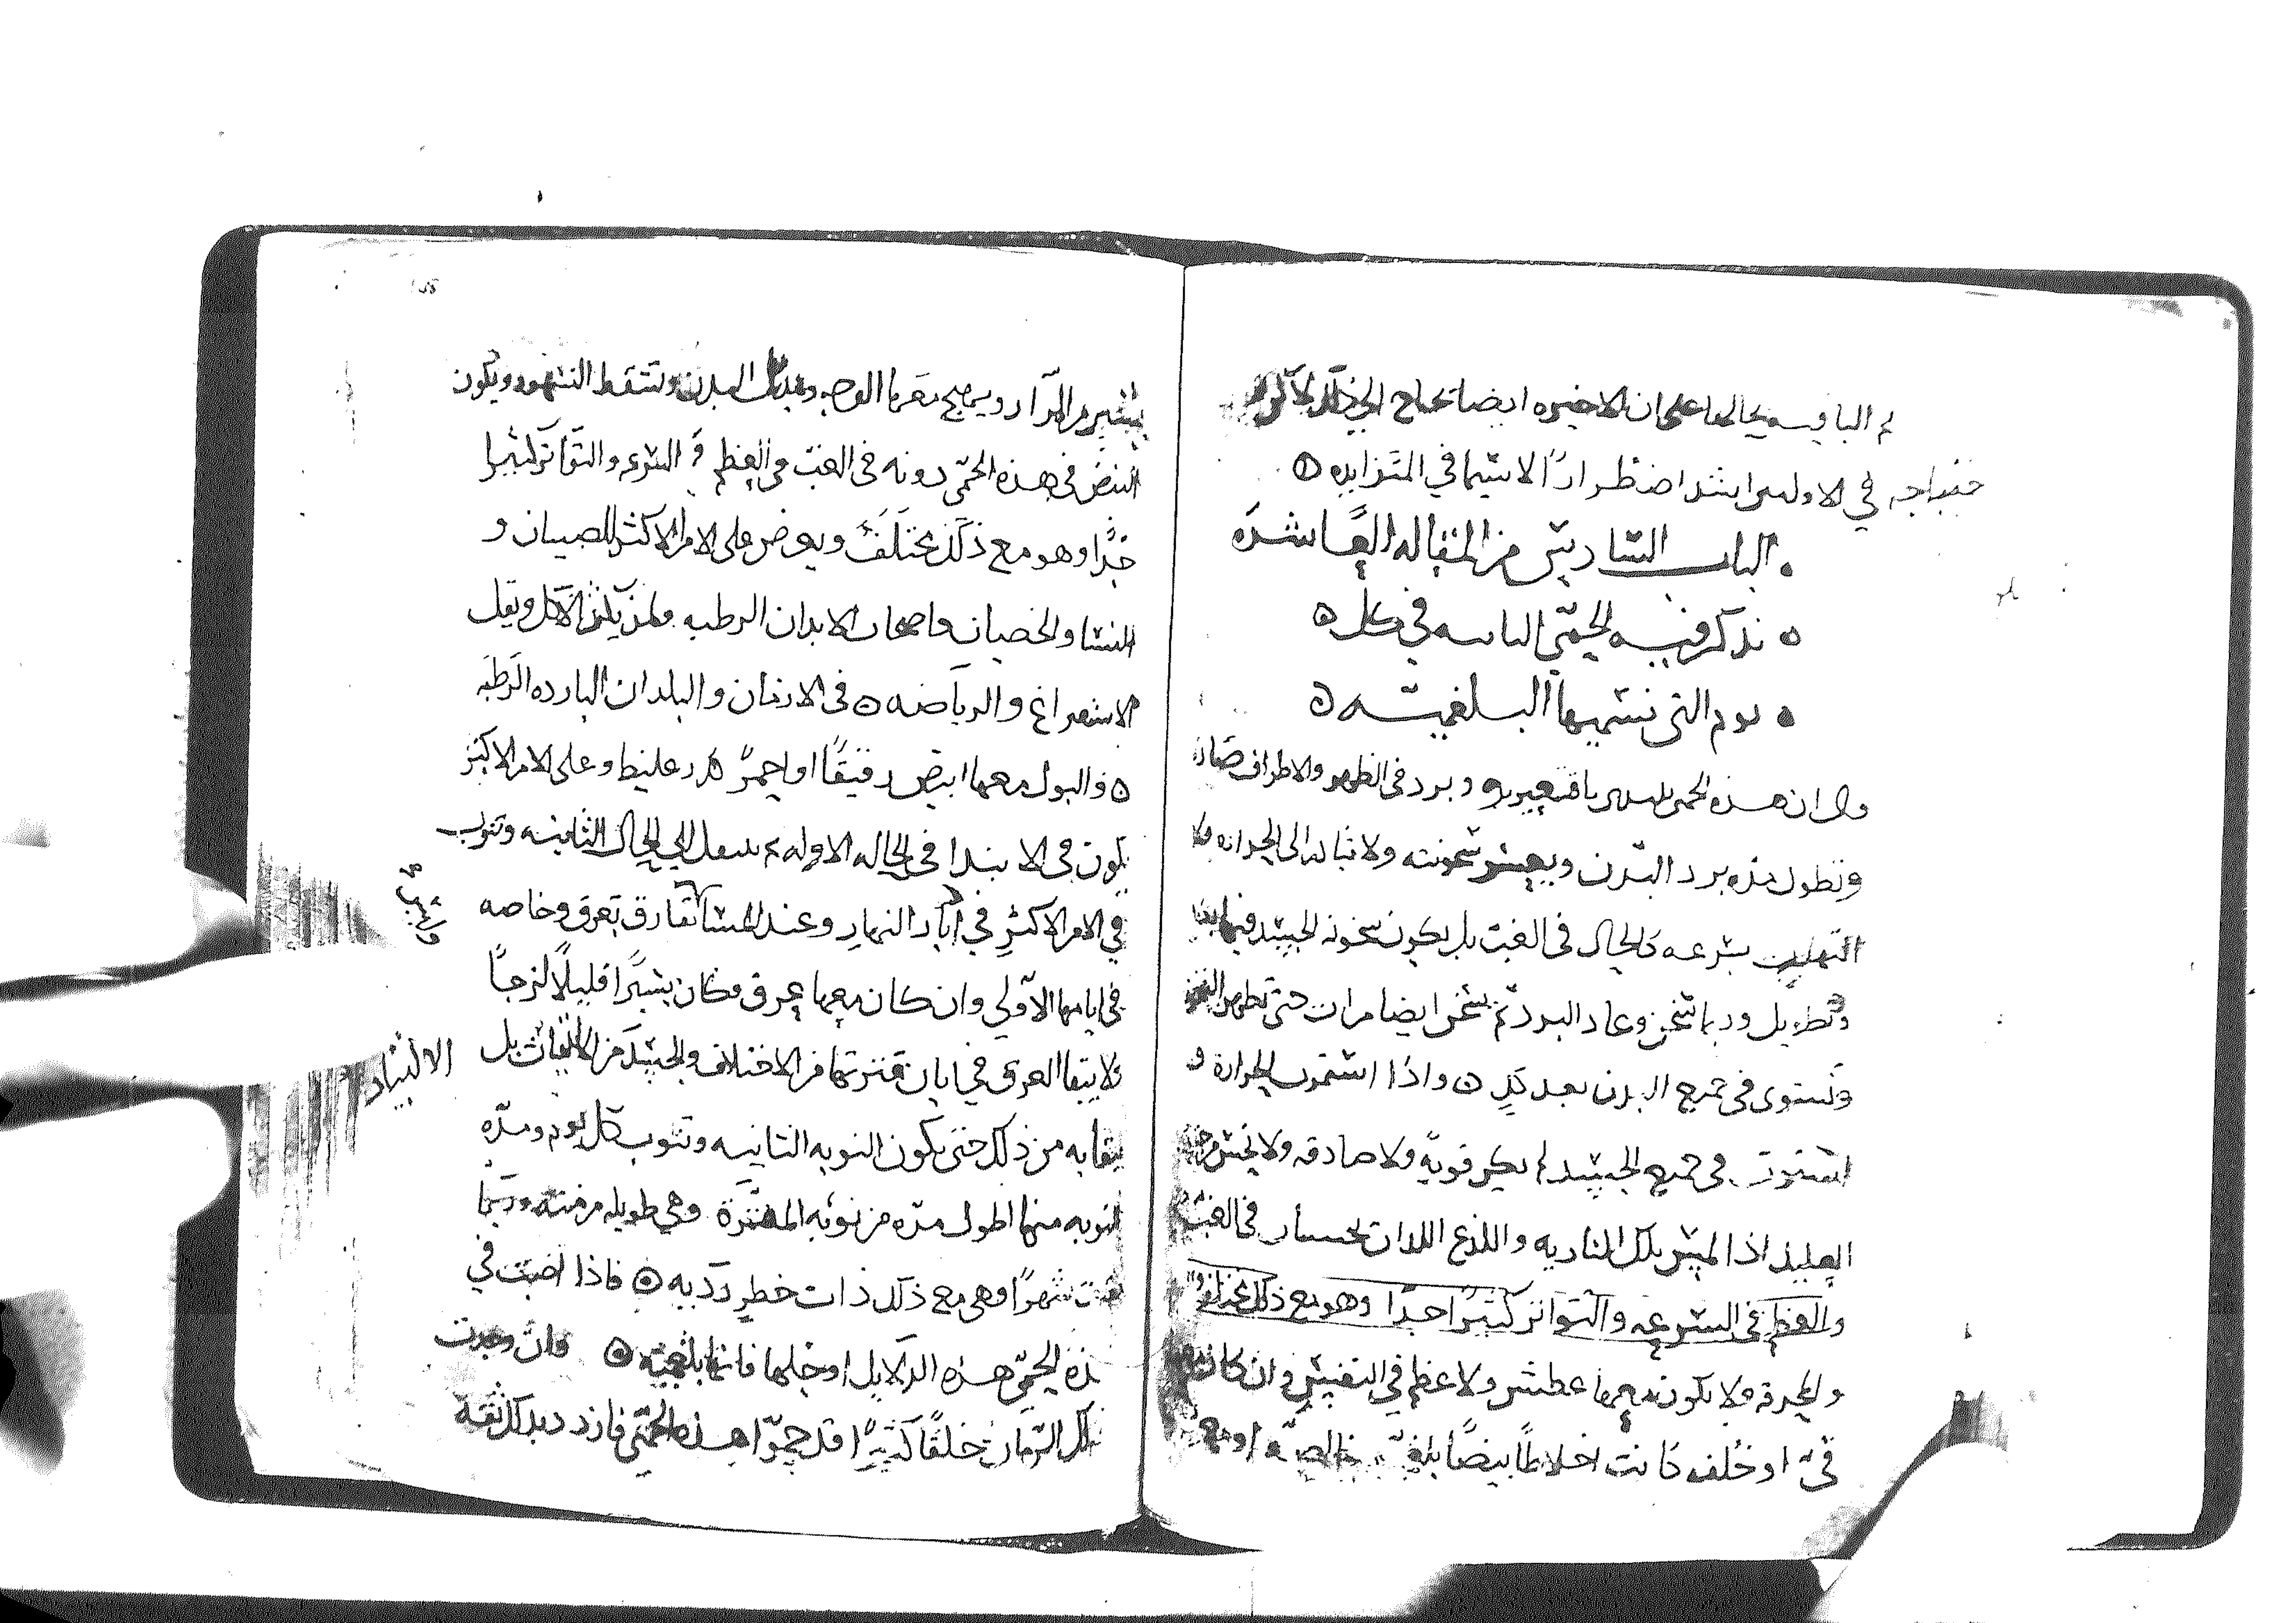 على ان الاخيره ايضا تحتاج الى ذلك
في الاولى اشد اضطرارًا لا سيما في المتزايده
الباب السادس من المقاله العاشره
نذكر فيه الحمى النايبه في كل
يوم التي نسميها البلغميه
ان هذه الحمى باقشعريره وبرد في الظهر والاطراف
وتطول مده برد البدن ويعسر سخونته ولا الى الحراره ولا
التهاب بسرعه كالحال في الغب بل يكون سخونه الجسد فيها
وتطويل وربما سخن وعاد البرد ثم سخن ايضا مرات حتى تظهر
وتستوي في جميع البدن بعد كدٍ واذا اشتملت الحراره و
استوت في جميع الجسد لم يكن قويةً ولا صادقه ولا يحس من
العليل اذا لمس بتلك الناريه واللذع اللذان في الغب
والعظم في السرعه والتواتر كثيرًا جدًا وهو مع ذلك مختلف
والحرقه ولا يكون معها عطش ولا عظم في التنفس وان كان
قيّ او خلفه كانت اخلاطًا بيضًا بلغميه خالصه او
من المرار ويسمج معها الوجه البدن وتسقط الشهوه ويكون
النبض في هذه الحمّى دونه في الغب في العظم في السرعه والتواتر كثيرا
جدًّا وهو مع ذلك مختلف ويعرض على الامر الاكثر للصبيان و
النسا والخصيان واصحاب الابدان الرطبه ولمن يكثر الاكل ويقل
الاستفراغ والرياضه في الازمان والبلدان البارده الرطبه
والبول معها ابيض رقيقًا او احمر كدر غليظ وعلى الامر الاكثر
يكون في الابتدا في الحاله الاوله ثم ينتقل الى الحال الثانيه وتنوب
في الامر الاكثر في النهار وعند المسا تفارق بعرق وخاصه
في ايامها الاولى وان كان معها عرق فكان يسيرًا قليلًا لزجًا
ولا يبقا العرق في ابان فترتها من الاختلاف والجسد من الالتهاب بل
الالتياث
يبقا به من ذلك حتى يكون النوبه الثانيه وتنوب كل يوم ومدّه
النوبه منها اطول مدّه من نوبه المفترة وهي طويله مزمنه وربّما
شهورًا وهي مع ذلك ذات خطرٍ رديه فاذا اصبت في
هذه الحمّى هذه الدلايل او جلها فانها بلغميّه وان وجدت
ذلك الزمان خلقًا كثيرًا قد حمّوا هذه الحمّى فازدد بذلك ثقة